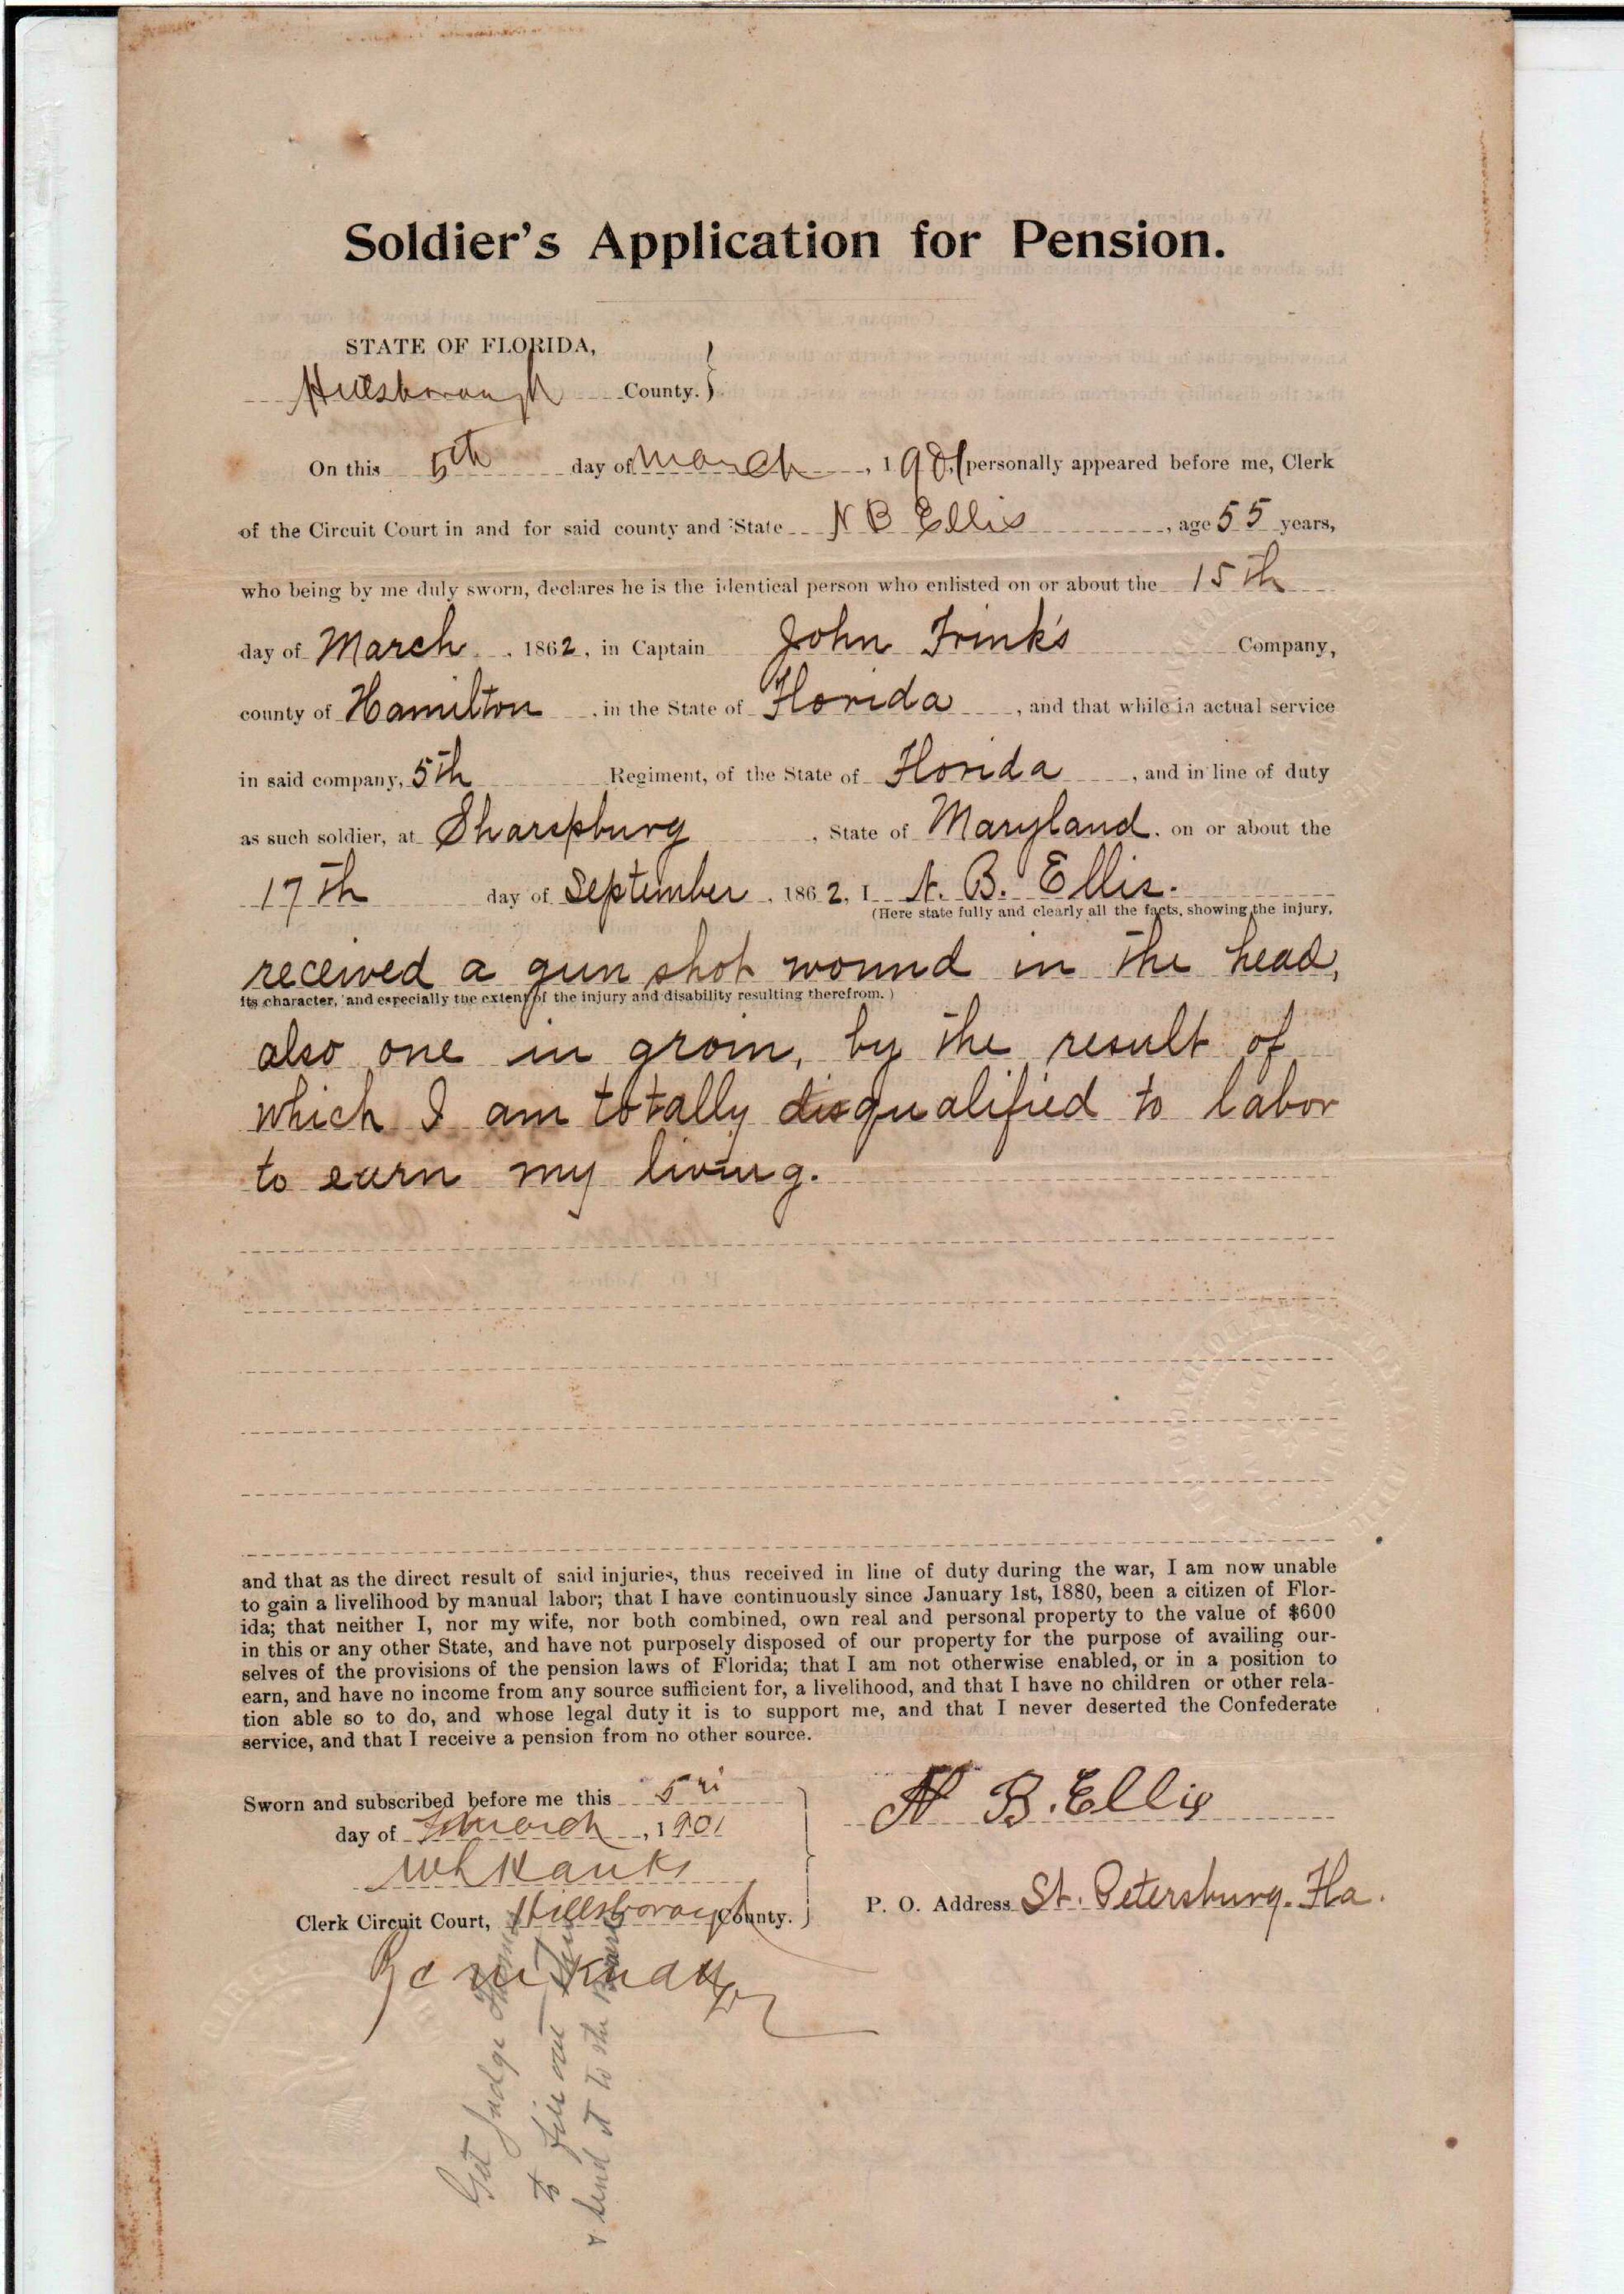 Soldier's Application for Pension.
STATE OF FLORIDA,
Hillsborough County.
On this 5th day of March, 1901, personally appeared before me, Clerk
of the Circuit Court in and for said county and State N B Ellis, age 55 years,
who being by me duly sworn, declares he is the identical person who enlisted on or about the 15th
day of March, 1862, in Captain John Frink's Company,
county of Hamilton, in the State of Florida, and that while in actual service
in said company, 5th Regiment, of the State of Florida, and in line of duty
as such soldier, at Sharpsburg, State of Maryland. on or about the
17th day of September, 1862, I N. B. Ellis.
(Here state fully and clearly all the facts, showing the injury,
received a gun shot wound in the head,
its character, and especially the extent of the injury and disability resulting therefrom.)
also one in groin, by the result of
which I am totally disqualified to labor
to earn my living.
and that as the direct result of said injuries, thus received in line of duty during the war, I am now unable
to gain a livelihood by manual labor; that I have continuously since January 1st, 1880, been a citizen of Flor-
ida; that neither I, nor my wife, nor both combined, own real and personal property to the value of $600
in this or any other State, and have not purposely disposed of our property for the purpose of availing our-
selves of the provisions of the pension laws of Florida; that I am not otherwise enabled, or in a position to
earn, and have no income from any source sufficient for, a livelihood, and that I have no children or other rela-
tion able so to do, and whose legal duty it is to support me, and that I never deserted the Confederate
service, and that I receive a pension from no other source.
Sworn and subscribed before me this 5th
day of March, 1901
N B. Ellis
Clerk Circuit Court, Hillsborough County.
P. O. Address St. Petersburg. Fla.
Get Judge
to fill out
& send it to the